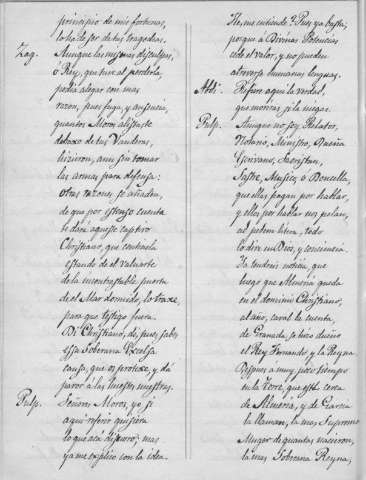 principio de mis fortunas,
lo ha de ser de tus tragedias.
Zag. Aunque las mismas disculpas,
o Rey, que tuve al perderla,
podia alegar con mas
razon, pues fuga, y ausencia,
quantos Moros alistaste
debaxo de tus Vanderas,
hizieron, aun sin tomar
las armas para defensa:
otras razones se añaden,
de que por extenso cuenta
te dará aqueste cautivo
Christiano, que centinela
estando de el valuarte
de la incontrastable puerta
de el Mar dormido, lo traxe,
para que testigo fuera.
Di Christiano, di, pues sabes
essa Soberana Excelsa
causa, que os protexe, y dá
pavor á las huestes nuestras.
Pulp. Señores Moros, yo si
aqui refirir quisiera
lo que acá discurro; mas
ya me explico con la idea.
He, me entiende? Pues ya basta;
porque á Divinas Potencias
cede el valor, y no pueden
atreverse humanas lenguas.
Abdi. Refiere aqui la verdad,
que moriras si la niegas.
Pulp. Aunque no soy Relator,
Notario, Ministro, Dueña
Escrivano, Sacristan,
Sastre, Musico, o Doncella,
que ellas pagan por hablar,
y ellos por hablar nos pelan,
ad pedem litere, todo
lo dire en Dios, y conciencia.
Ya tendrás noticia, que
luego que Almeria queda
en el dominio Christiano,
al año, caval la cuenta,
de Granada, se hizo dueño
el Rey Fernando, y la Reyna
Despues a muy poco tiempo
en la Torre, que está cerca
de Almeria, y de Garcia
la llaman, la mas Suprema
Muger de quantas nacieron,
la mas Soberana Reyna,